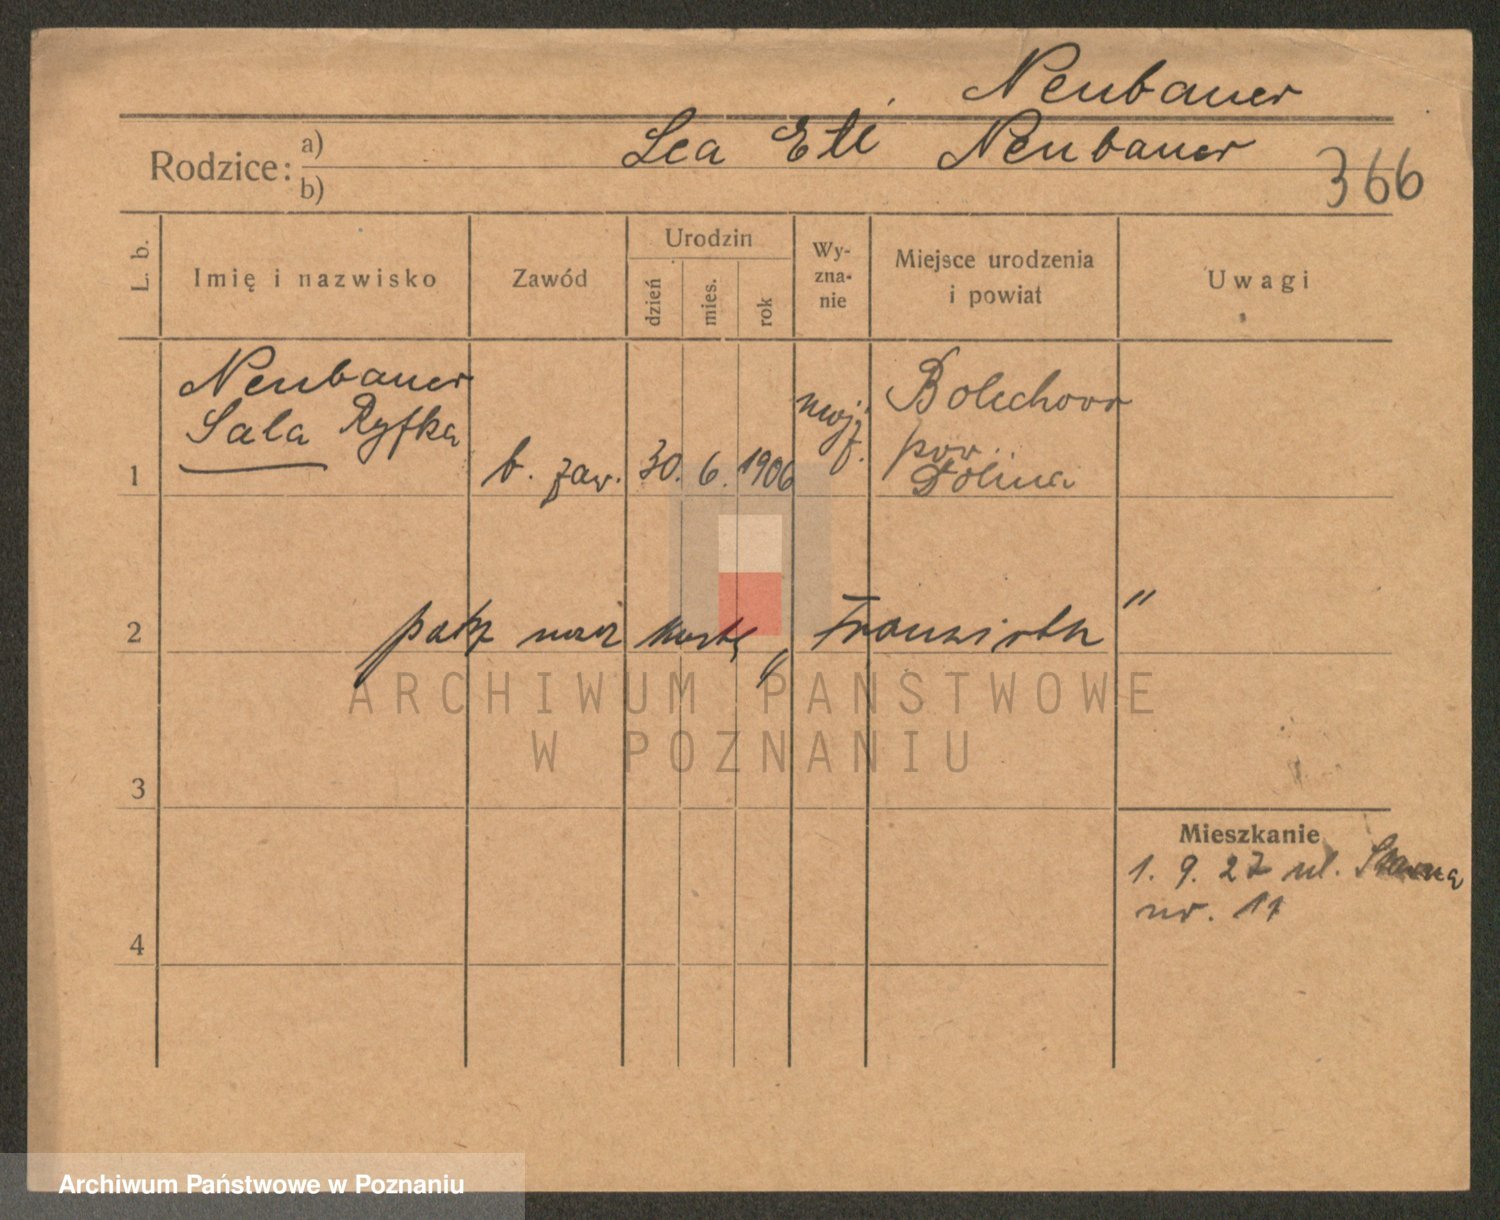 Neubauer
Lea Eti Neubauer
Rodzice: a)
b)
366
L. b.
Imię i nazwisko
Zawód
Urodzin
dzień
mies.
rok
Wy-
zna-
nie
Miejsce urodzenia
i powiat
Uwagi
1
Neubauer
Sala Ryfka
b. zaw.
30. 6. 1906
mojż.
Bolechow
pow.
Dolina
2
nasz kartę „ "
3
4
Mieszkanie
1. 9. 27 ul.
nr. 11
ARCHIWUM PAŃSTWOWE
W POZNANIU
Archiwum Państwowe w Poznaniu